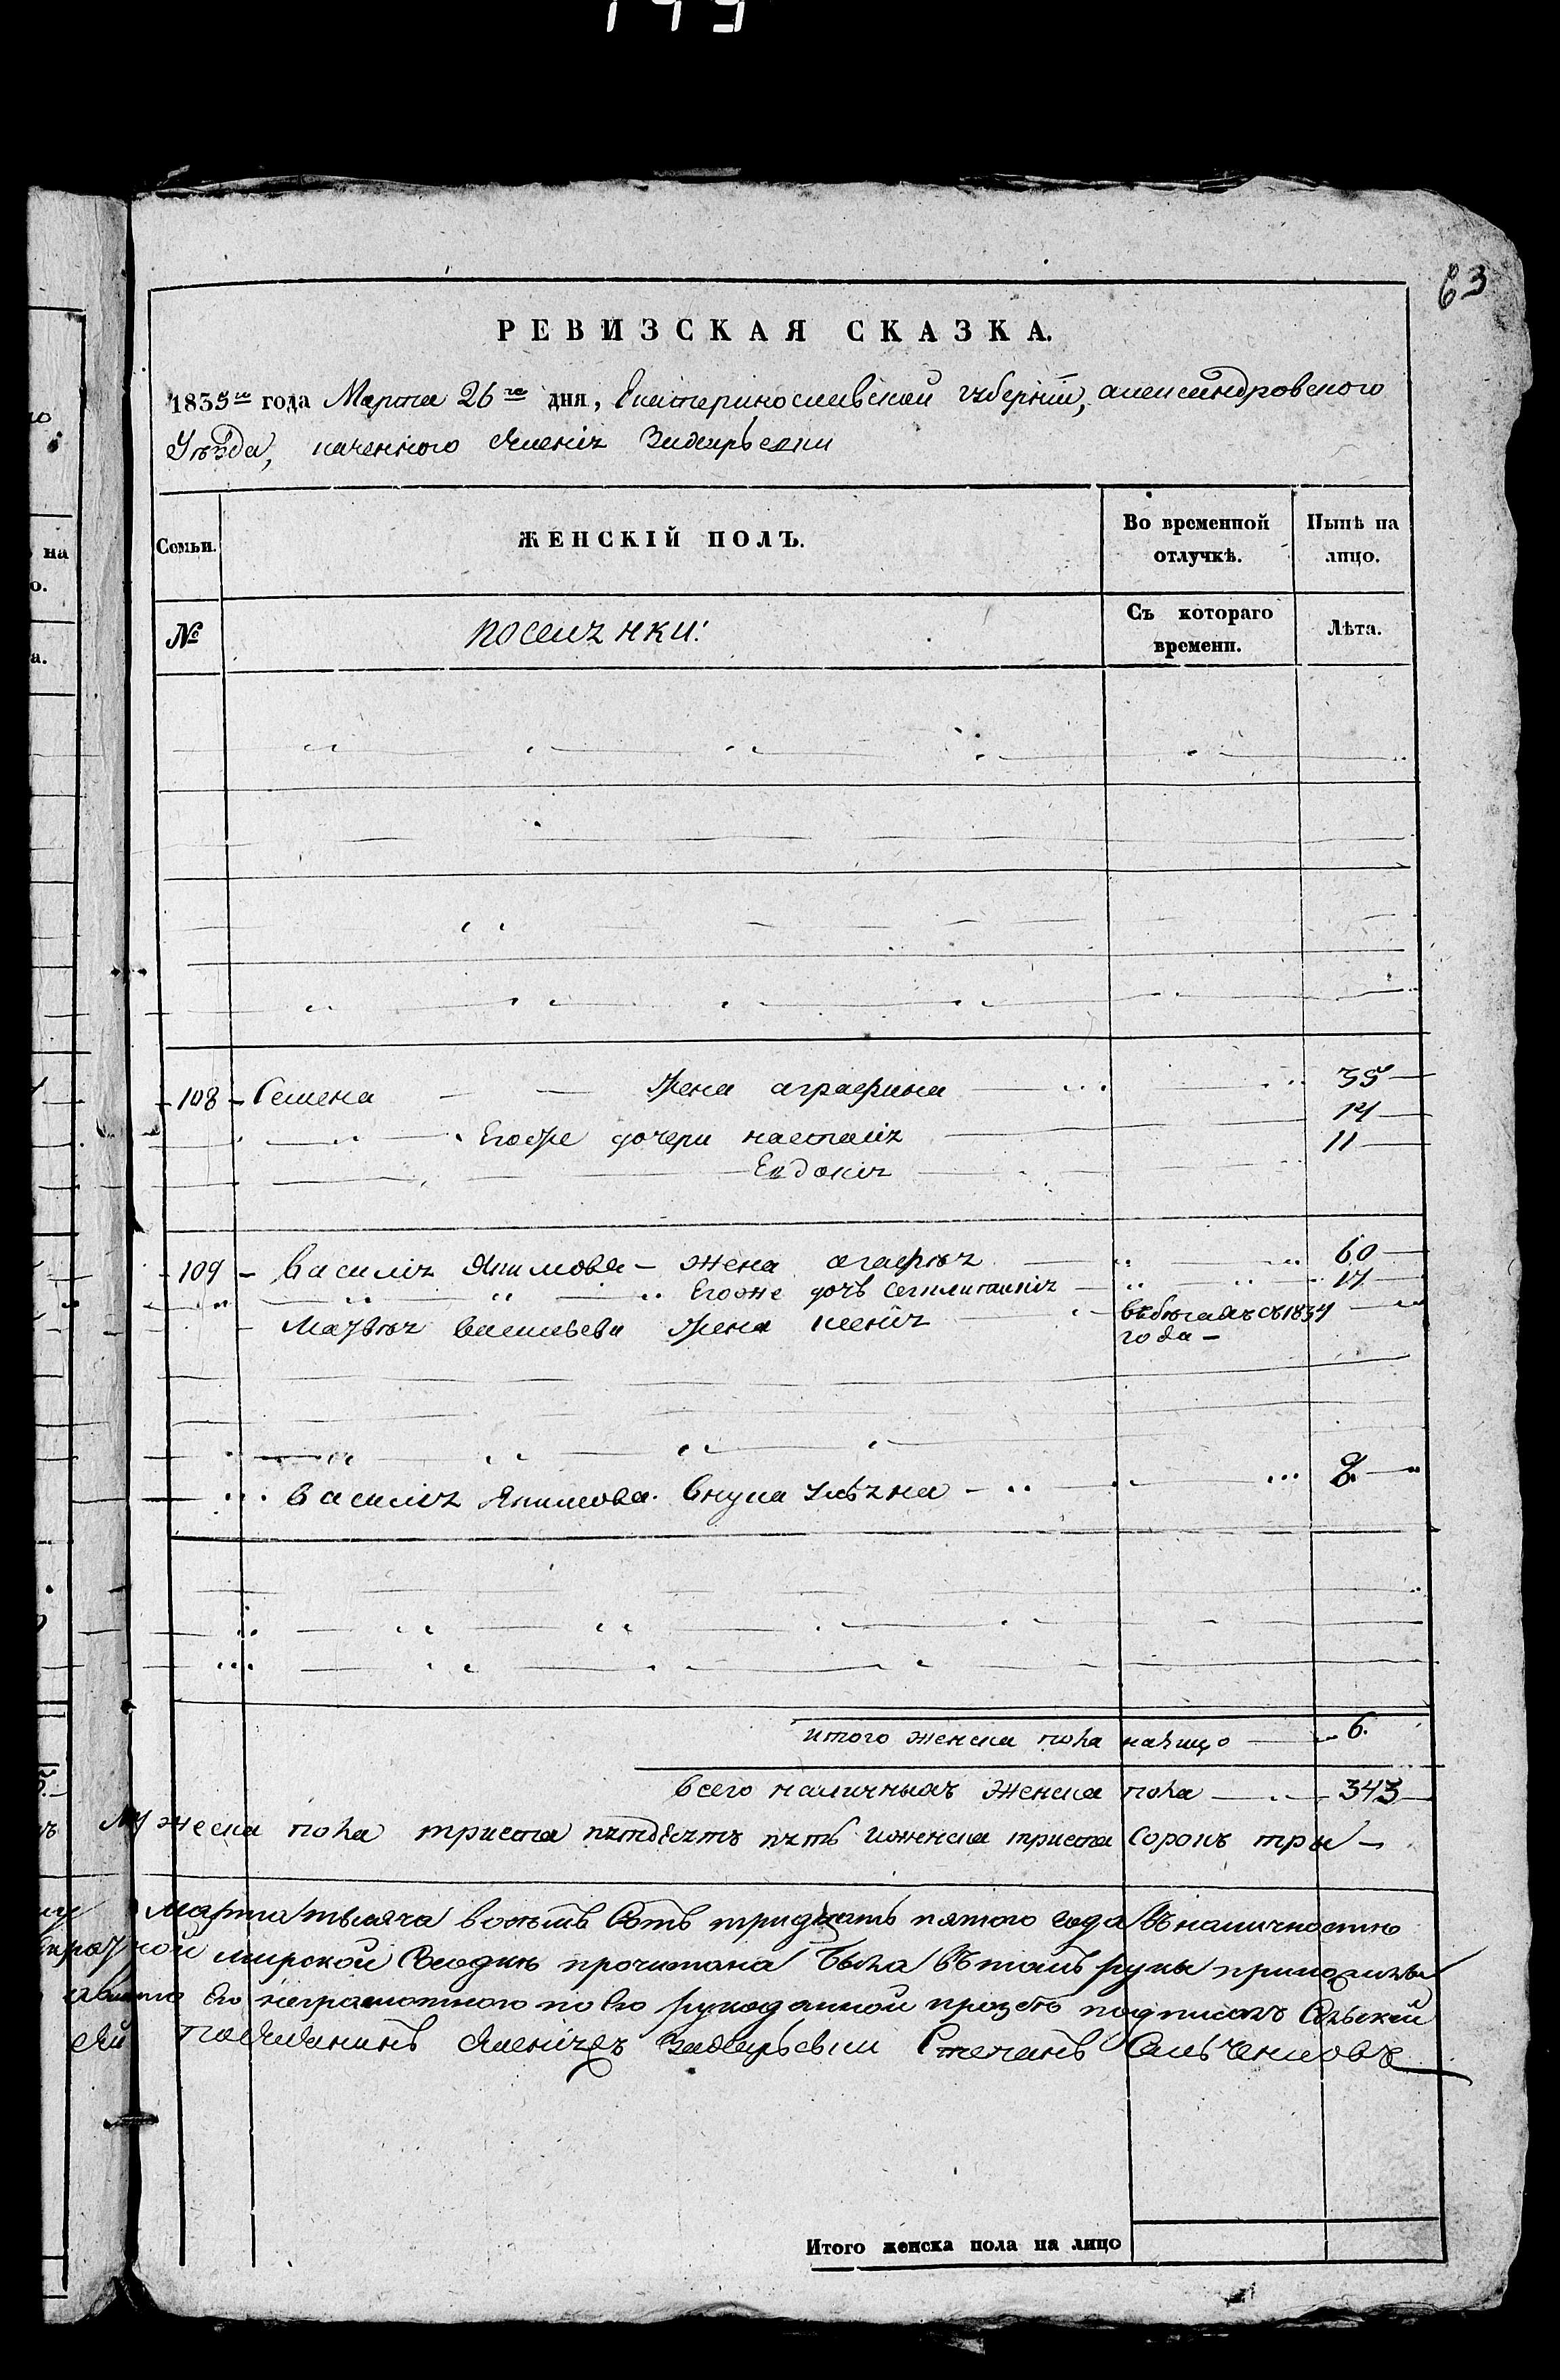 199
63
РЕВИЗСКАЯ СКАЗКА.
1835го года Марта 26го дня, Екатеринославской губерніи, александровского
Уѣзда, казенного Имѣнія
№ Семьи.
ЖЕНСКІЙ ПОЛЪ.
Во временной отлучкѣ.
Нынѣ на лицо.
поселянки:
Съ котораго времени.
Лѣта.
108 Семена жена аграфина 35
Егоже дочери настасія 14
Евдокія 11
109 василія Якимова жена агафія 60
Егоже дочь 17
Матвѣя васильева жена ксенія вбѣгахъ съ 1834
года
василія Якимова внука 8
итого женска пола налицо 6.
всего наличныхъ женска пола 343
Мужеска пола триста пятдесятъ пять иженска триста сорокъ три
марта тысяча восемь сотъ тридцать пятого года въ наличностію
мирской сходкѣ прочитана была вътомъ руки приложилъ
его неграмотного по его рукоданной прозбѣ подписалъ Сельской
поселянинъ Степанъ
Итого женска пола на лицо